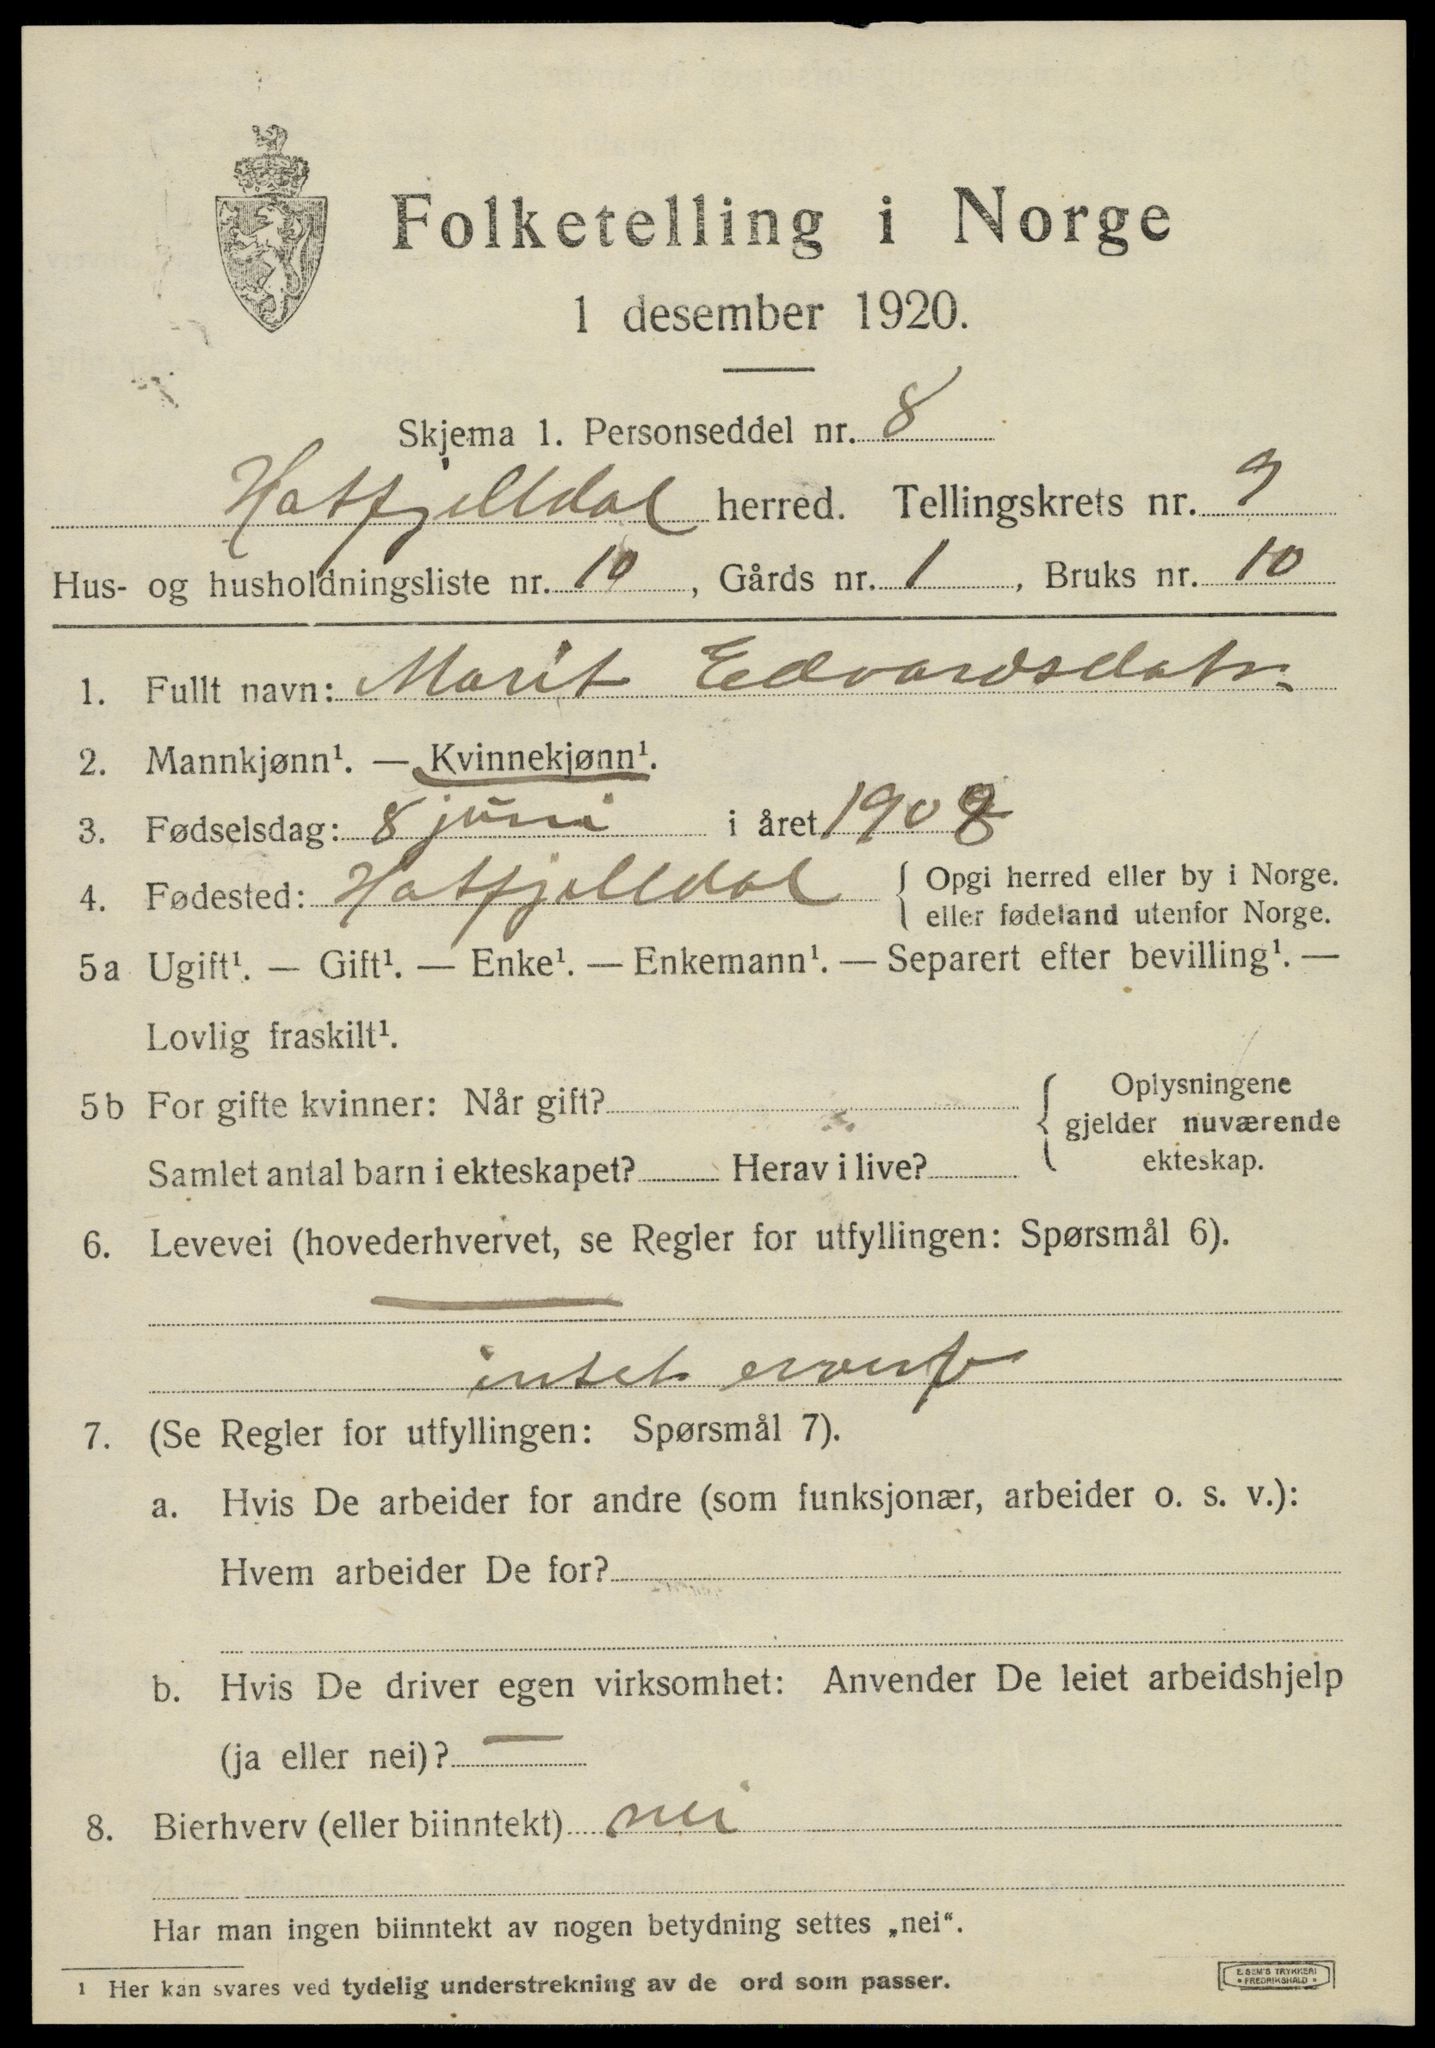 Folketelling i Norge
1 desember 1920.
Skjema 1. Personseddel nr. 8
Hatfjelldal herred. Tellingskrets nr. 9
Hus- og husholdningsliste nr. 10, Gårds nr. 1, Bruks nr. 10
1. Fullt navn: Marit Edvardsdatr.
2. Mannkjønn¹. — Kvinnekjønn¹.
3. Fødselsdag: 8 juni i året
4. Fødested: Hatfjelldal { Opgi herred eller by i Norge.
eller fødeland utenfor Norge.
5a Ugift¹. — Gift¹. — Enke¹. — Enkemann¹. — Separert efter bevilling¹. —
Lovlig fraskilt¹.
5b For gifte kvinner: Når gift?
Samlet antal barn i ekteskapet? Herav i live?
{ Oplysningene
gjelder nuværende
ekteskap.
6. Levevei (hovederhvervet, se Regler for utfyllingen: Spørsmål 6).
intet
7. (Se Regler for utfyllingen: Spørsmål 7).
a. Hvis De arbeider for andre (som funksjonær, arbeider o. s. v.):
Hvem arbeider De for?
b. Hvis De driver egen virksomhet: Anvender De leiet arbeidshjelp
(ja eller nei)? —
8. Bierhverv (eller biinntekt) nei
Har man ingen biinntekt av nogen betydning settes „nei“.
¹ Her kan svares ved tydelig understrekning av de ord som passer.
E. SEM'S TRYKKERI
• FREDRIKSHALD •